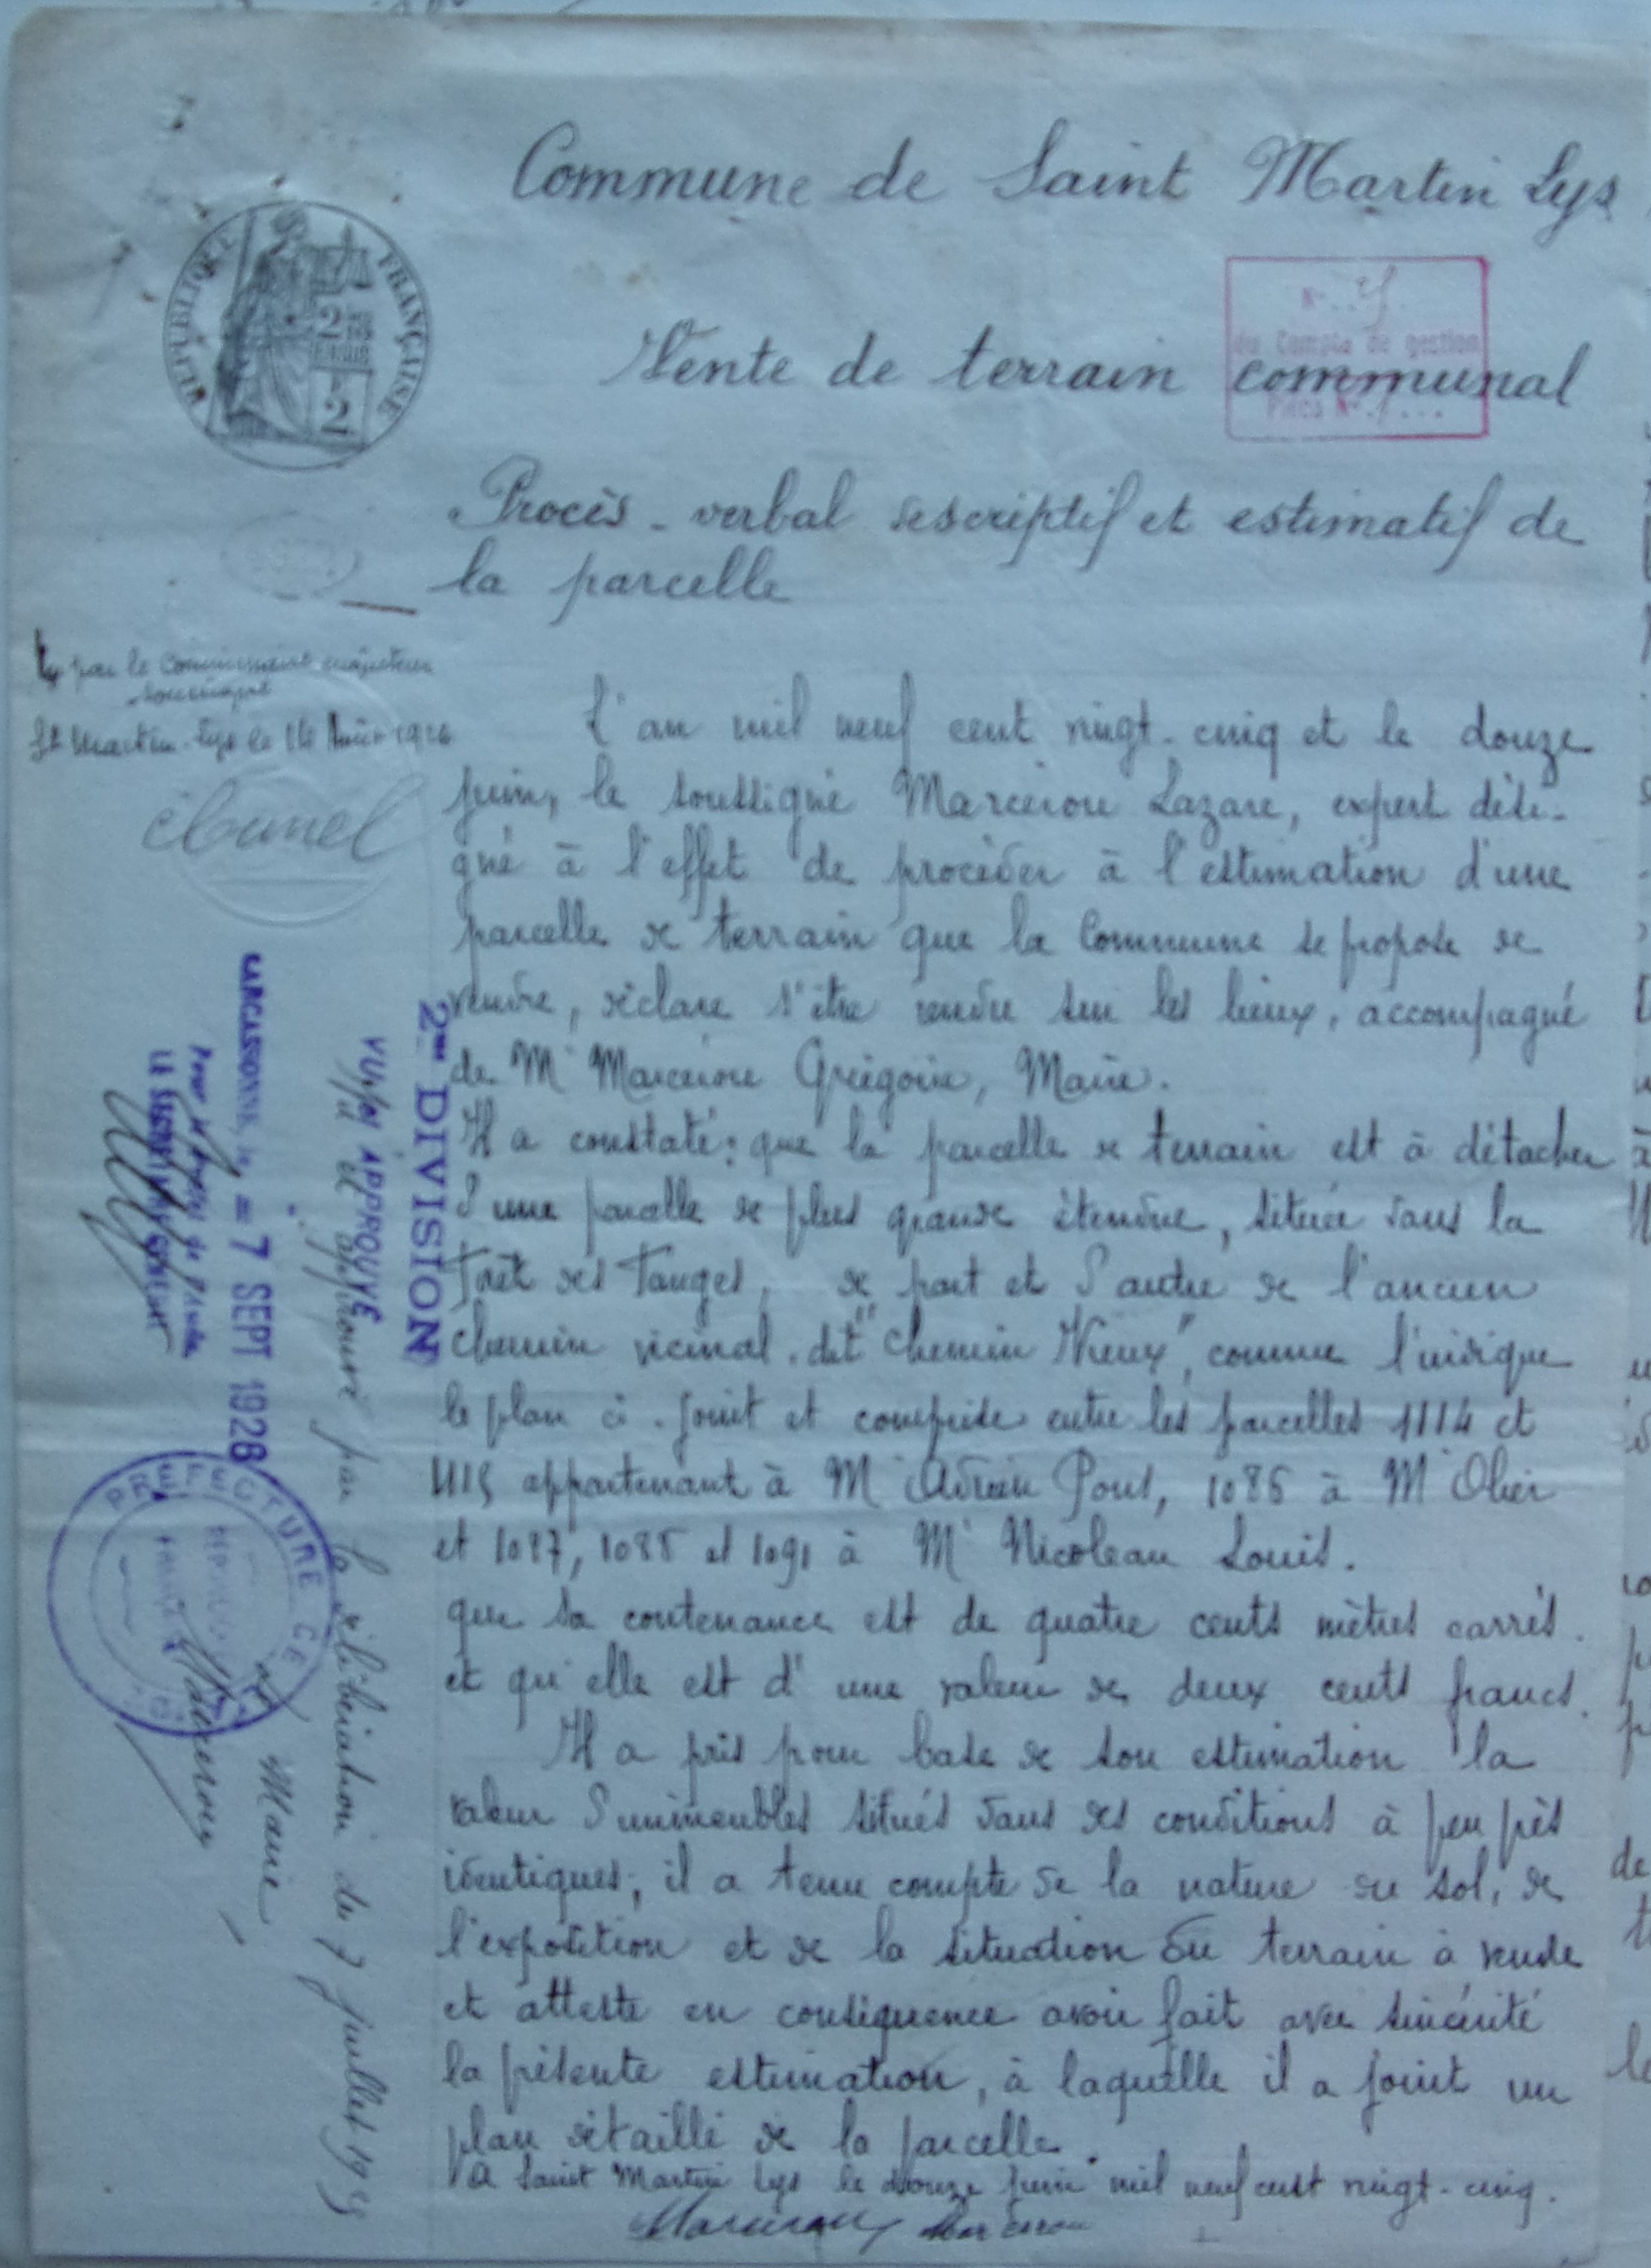 Commune de Saint Martin Lys
RÉPUBLIQUE FRANÇAISE
2
2
N°
du Compte de gestion
Pièce N°
Vente de terrain communal
Procès-verbal descriptif et estimatif de
la parcelle
Vu par le Commissaire enquêteur
soussigné
St Martin-Lys le 14
L'an mil neuf cent vingt-cinq et le douze
juin, le soussigné Marcerou Lazare, expert dési-
gné à l'effet de procéder à l'estimation d'une
parcelle de terrain que la Commune se propose de
vendre, déclare s'être rendu sur les lieux, accompagné
de Mr Marcerou Grégoire, Maire.
Il a constaté : que la parcelle de terrain est à détacher
d'une parcelle de plus grande étendue, située dans la
Forêt des Fanges, de part et d'autre de l'ancien
chemin vicinal, dit "Chemin Vieux", comme l'indique
le plan ci-joint et comprise entre les parcelles 1114 et
1115 appartenant à Mr Adrien Pons, 1086 à Mr Olier
et 1087, 1088 et 1091 à Mr Nicoleau Louis.
que sa contenance est de quatre cents mètres carrés.
et qu'elle est d'une valeur de deux cents francs.
Il a pris pour base de son estimation la
valeur d'immeubles situés dans des conditions à peu près
identiques; il a tenu compte de la nature du sol, de
l'exposition et de la situation du terrain à vendre
et atteste en conséquence avoir fait avec sincérité
la présente estimation, à laquelle il a joint un
plan détaillé de la parcelle.
A Saint Martin Lys le douze juin mil neuf cent vingt-cinq.
Marcerou Marcerou
2me DIVISION
VU ET APPROUVÉ
CARCASSONNE, le = 7 SEPT 1926
LE SECRÉTAIRE GÉNÉRAL
Vu et approuvé par la délibération du 7 juillet 1925
Le Maire
Marcerou
PRÉFECTURE DE